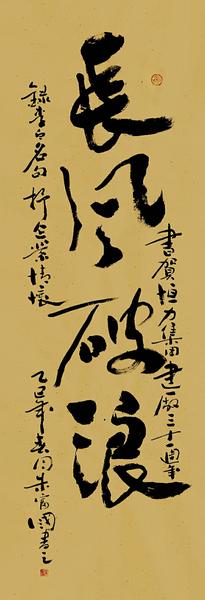 書賀恒力集団建厰三十一周年
長風破浪
録李白名句抒企業情懷
乙巳年春月朱富國書之